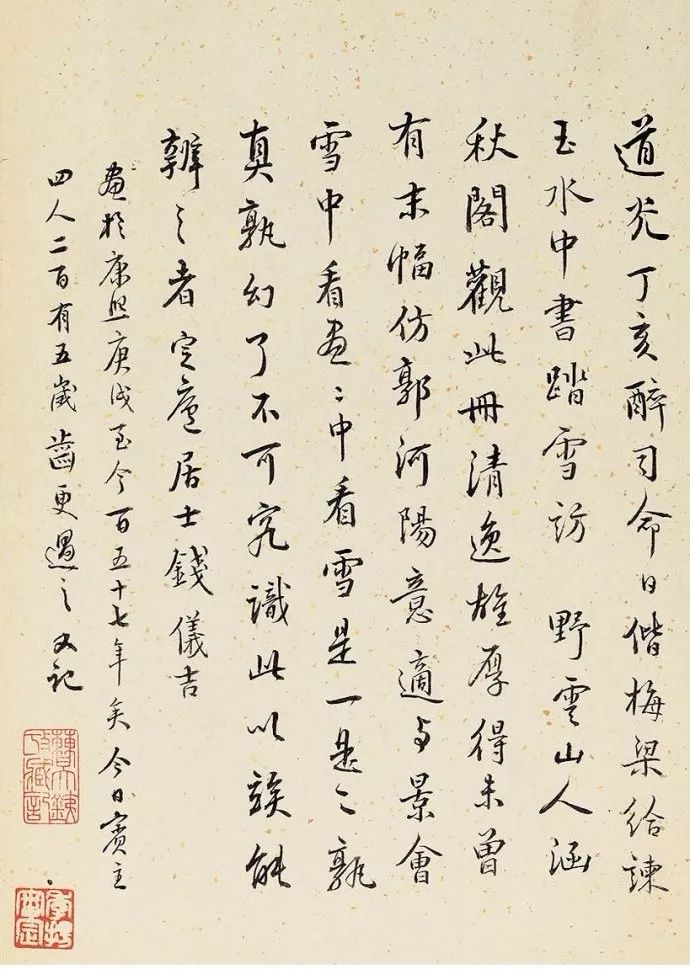 道光丁亥醉司命日偕梅梁给諫
玉水中書踏雪訪 野雲山人涵
秋閣觀此冊清逸雄厚得未曾
有末幅仿郭河陽意適与景會
雪中看画〻中看雪是一是二孰
真孰幻了不可究識此以竢能
辨之者 定廬居士錢儀吉
画於康熙庚戌至今百五十七年矣今日賓主
四人二百有五歲齒更過之又記